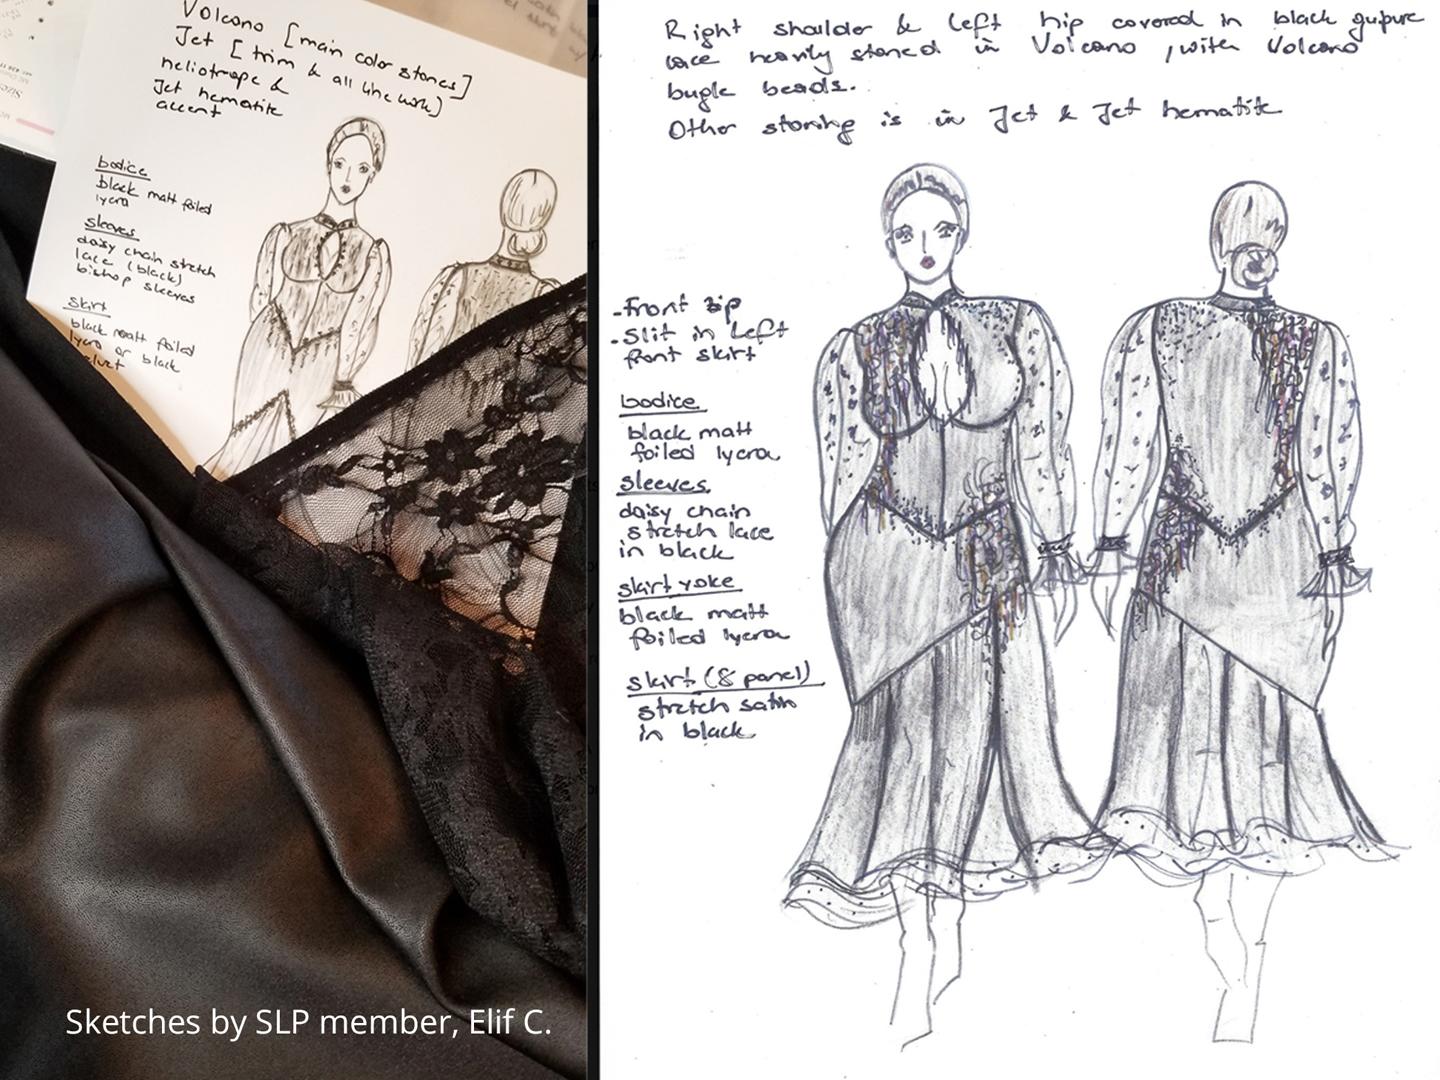 Volcano [main color stones]
Jet [trim & all the work]
heliotrope &
Jet hematite
accent
bodice
black matt foiled
lycra
sleeves
daisy chain stretch
lace (black)
bishop sleeves
skirt
black matt foiled
lycra or black
Sketches by SLP member, Elif C.
Right shoulder & left hip covered in black gupure
lace heavily stoned in Volcano, with Volcano
bugle beads.
Other stoning is in Jet & Jet hematite
-front zip
-Slit in left
front skirt
bodice
black matt
foiled lycra
sleeves
daisy chain
stretch lace
in black
skirt yoke
black matt
foiled lycra
skirt (8 panel)
stretch satin
in black